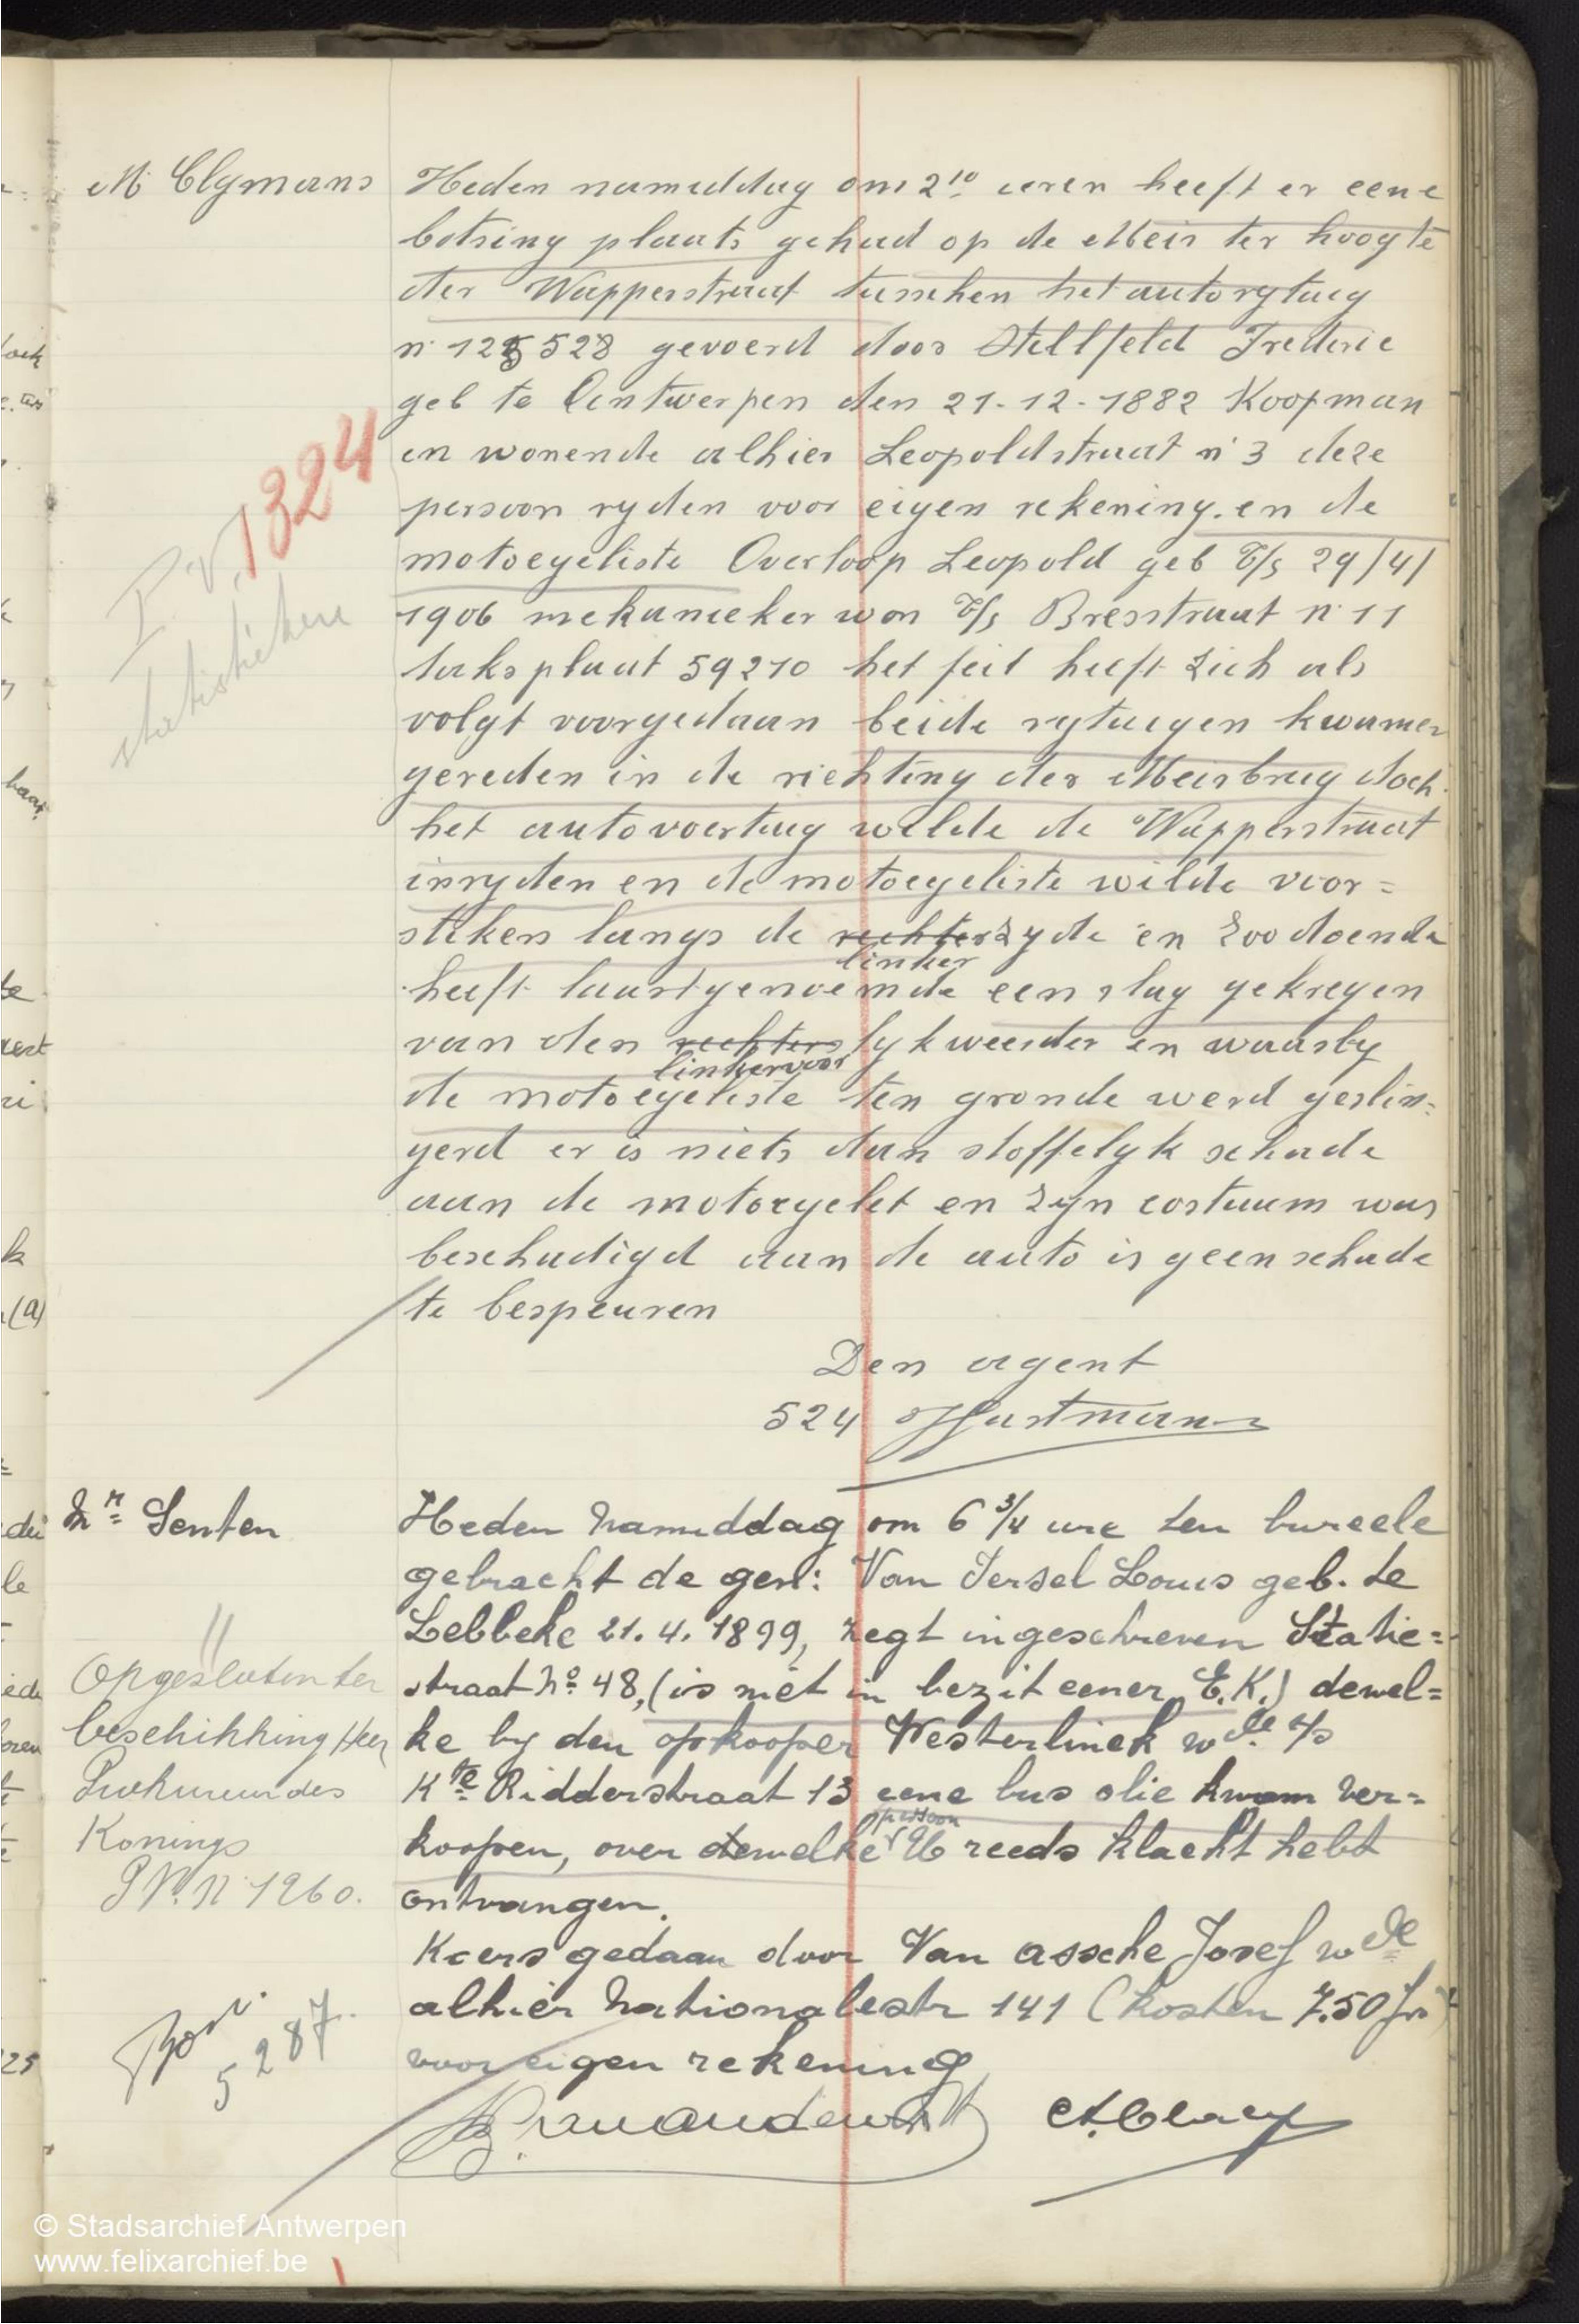 M. Clymans
Heden namiddag om 2¹⁰ uren heeft er eene
botsing plaats gehad op de Meir ter hoogte
der Wapperstraat tusschen het autorytuig
n° 125528 gevoerd door Stellfeld Frederic
geb te Antwerpen den 21-12-1882 Koopman
en wonende alhier Leopoldstraat n° 3 deze
persoon ryden voor eigen rekening. en de
motocycliste Overloop Leopold geb t/s 29/4/
1906 mekanieker won t/s Bresstraat n° 11
taksplaat 59210 het feit heeft zich als
volgt voorgedaan beide rytuigen kwamen
gereden in de richting der Meirbrug doch
het autovoertuig wilde de Wapperstraat
inryden en de motocycliste wilde voor=
steken langs de rechterzyde en zoodoende
linker
heeft laastgenoemde een slag gekregen
van den rechterslykweerder en waarby
linkervoor
de motocycliste ten gronde werd geslin=
gerd er is niets dan stoffelyk schade
aan de motorcyclet en zyn costuum was
beschadigd aan de auto is geen schade
te bespeuren
Den agent
524 Hartman
P.V. 1324
statistieken
Mr Senten
Heden namiddag om 6 3/4 ure ten bureele
gebracht de gen: Van Iersel Louis geb. te
Lebbeke 21.4.1899, zegt ingeschreven Statie=
straat No 48, (is niet in bezit eener E.K.) dewel=
ke by den opkooper Westerlinck wde t/s
Kte Ridderstraat 13 eene bus olie kwam ver=
koopen, over dewelke persoon U reeds klacht hebt
ontvangen.
Koers gedaan door Van assche Josef wde
alhier Nationalestr 141 (Kosten 7.50 fr)
voor eigen rekening
A. Claey
//
Opgesloten ter
beschikking Heer
Prokureur des
Konings
PV. N 1960.
Bon.
5287.
© Stadsarchief Antwerpen
www.felixarchief.be